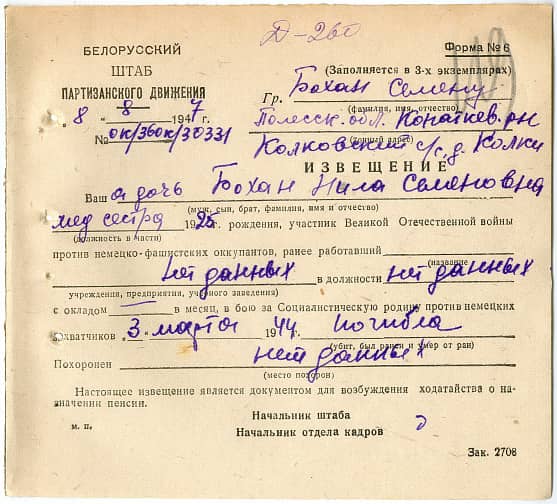 Д-260
БЕЛОРУССКИЙ
ШТАБ
ПАРТИЗАНСКОГО ДВИЖЕНИЯ
„8 " 8 1947
№ ок/360к/30331
Форма № 6
(Заполняется в 3-х экземплярах)
Гр. Бохан Семену
(фамилия, имя, отчество)
Полесск. обл. Копаткев. р-н
(точный адрес)
Колковский с/с, д. Колки
ИЗВЕЩЕНИЕ
Ваша дочь Бохан Нила Семеновна
(муж, сын, брат, фамилия, имя и отчество)
мед сестра 1925 рождения, участник Великой Отечественной войны
(должность в части)
против немецко-фашистских оккупантов, ранее работавший
(название
нет данных в должности нет данных
учреждения, предприятия, учебного заведения)
с окладом — в месяц, в бою за Социалистическую родину против немецких
захватчиков „3. марта 1944 погибла
(убит, был ранен и умер от ран)
Похоронен нет данных
(место похорон)
Настоящее извещение является документом для возбуждения ходатайства о на-
значении пенсии.
Начальник штаба
м. п.
Начальник отдела кадров
Зак. 2708